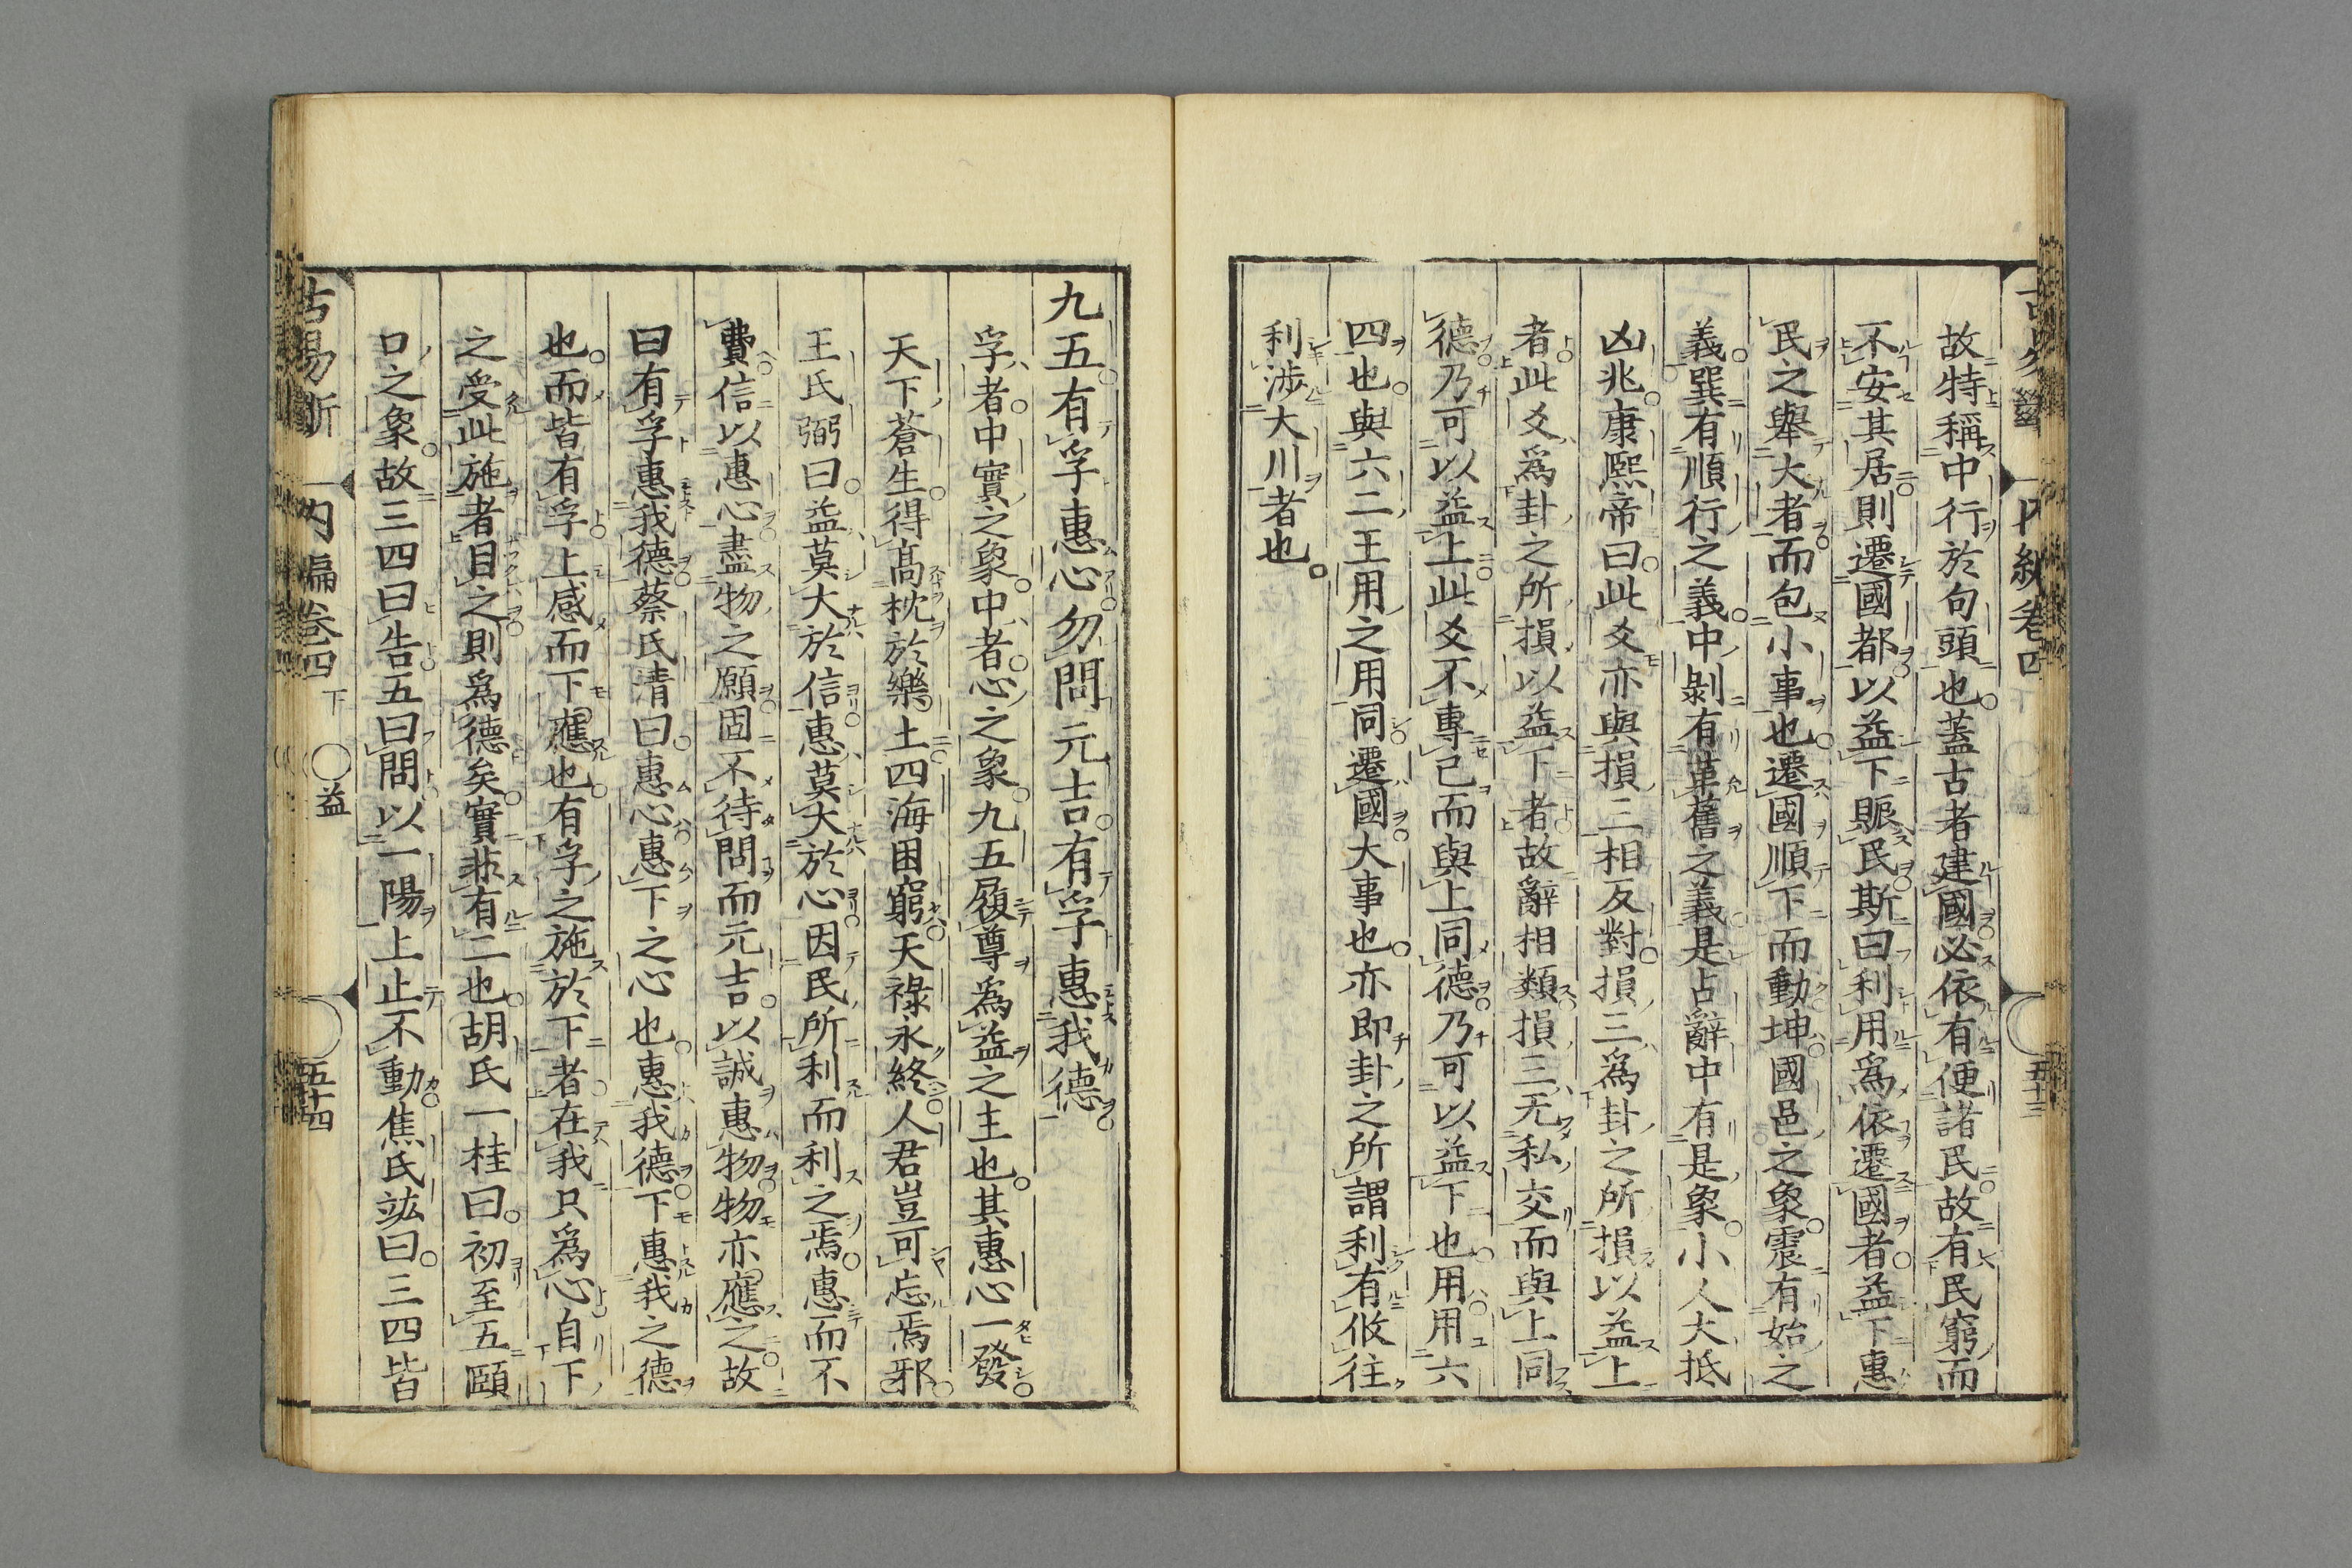 故特稱中行於句頭也蓋古者建國必依有便諸民故有民窮而
不安其居則遷國都以益下賑民斯曰利用爲依遷國者益下惠
民之舉大者而包小事也遷國順下而動坤國邑之象震有始之
義巽有順行之義中剝有革舊之義是占辭中有是象小人大抵
凶兆康熙帝曰此爻亦與損三相反對損三爲卦之所損以益上
者此爻爲卦之所損以益下者故辭相類損三无私交而與上同
德乃可以益上此爻不專己而與上同德乃可以益下也用用六
四也與六二王用之用同遷國大事也亦即卦之所謂利有攸往
利涉大川者也
九五有孚惠心勿問元吉有孚惠我德
孚者中實之象中者心之象九五履尊爲益之主也其惠心一發
天下蒼生得高枕於樂土四海困窮天祿永終人君豈可忘焉邪
王氏弼曰益莫大於信惠莫大於心因民所利而利之焉惠而不
費信以惠心盡物之願固不待問而元吉以誠惠物物亦應之故
曰有孚惠我德蔡氏清曰惠心惠下之心也惠我德下惠我之德
也而皆有孚上感而下應也有孚之施於下者在我只爲心自下
之受此施者目之則爲德矣實非有二也胡氏一桂曰初至五頤
口之象故三四曰告五曰問以一陽上止不動焦氏竑曰三四皆
古易斷 内編卷四 下 益 五十四